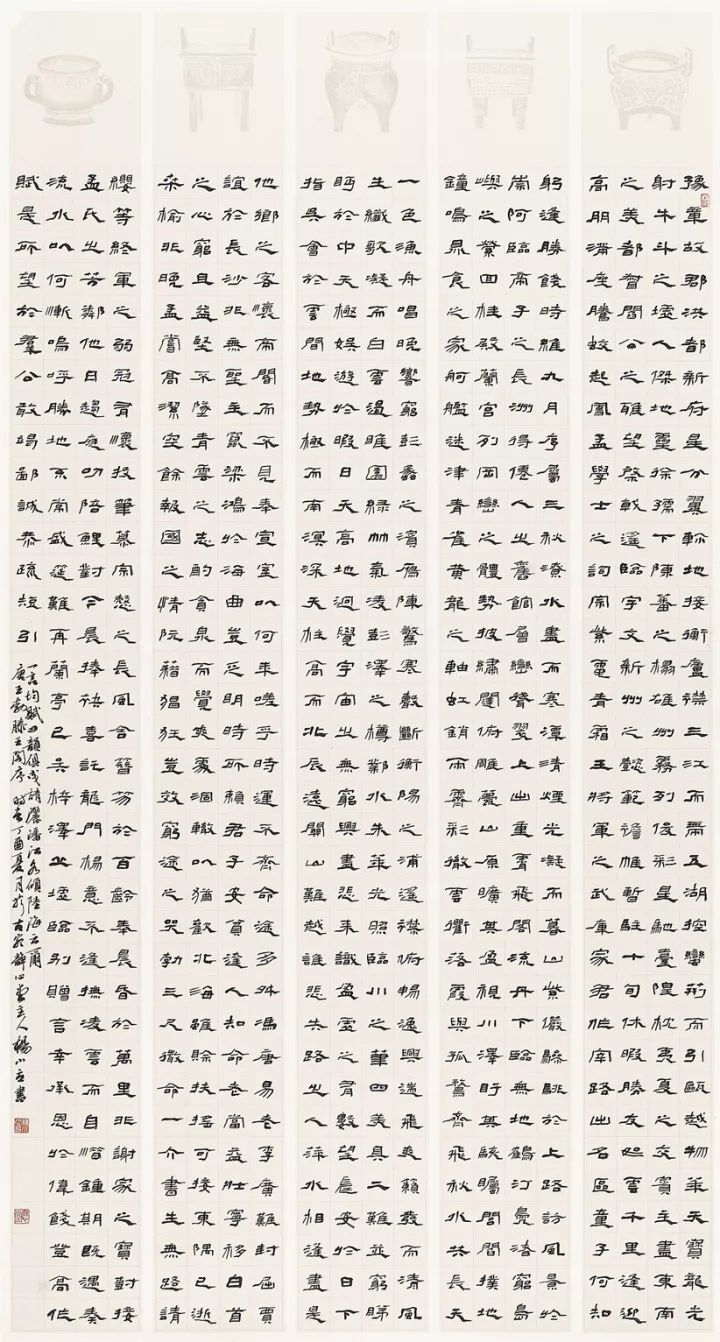 豫章故郡洪都新府星分翼軫地接衡廬襟三江而帶五湖控蠻荊而引甌越物華天寶龍光
射牛斗之墟人傑地靈徐孺下陳蕃之榻雄州霧列俊彩星馳臺隍枕夷夏之交賓主盡東南
之美都督閻公之雅望棨戟遙臨宇文新州之懿範襜帷暫駐十旬休暇勝友如雲千里逢迎
高朋滿座騰蛟起鳳孟學士之詞宗紫電青霜王將軍之武庫家君作宰路出名區童子何知
躬逢勝餞時維九月序屬三秋潦水盡而寒潭清煙光凝而暮山紫儼驂騑於上路訪風景於
崇阿臨帝子之長洲得僊人之舊館層巒聳翠上出重霄飛閣流丹下臨無地鶴汀鳧渚窮島
嶼之縈回桂殿蘭宮列岡巒之體勢披繡闥俯雕甍山原曠其盈視川澤盱其駭矚閭閻撲地
鐘鳴鼎食之家舸艦迷津青雀黃龍之軸虹銷雨霽彩徹雲衢落霞與孤鶩齊飛秋水共長天
一色漁舟唱晚響窮彭蠡之濱雁陣驚寒聲斷衡陽之浦遙襟俯暢逸興遄飛爽籟發而清風
生纖歌凝而白雲遏睢園綠竹氣凌彭澤之樽鄴水朱華光照臨川之筆四美具二難並窮睇
眄於中天極娛遊於暇日天高地迥覺宇宙之無窮興盡悲來識盈虛之有數望長安於日下
指吳會於雲間地勢極而南溟深天柱高而北辰遠關山難越誰悲失路之人萍水相逢盡是
他鄉之客懷帝閽而不見奉宣室以何年嗟乎時運不齊命途多舛馮唐易老李廣難封屈賈
誼於長沙非無聖主竄梁鴻於海曲豈乏明時所賴君子安貧達人知命老當益壯寧移白首
之心窮且益堅不墜青雲之志酌貪泉而覺爽處涸轍以猶歡北海雖賒扶搖可接東隅已逝
桑榆非晚孟嘗高潔空餘報國之情阮籍猖狂豈效窮途之哭勃三尺微命一介書生無路請
纓等終軍之弱冠有懷投筆慕宗慤之長風舍簪笏於百齡奉晨昏於萬里非謝家之寶樹接
孟氏之芳鄰他日趨庭叨陪鯉對今晨捧袂喜託龍門楊意不逢撫凌雲而自惜鍾期既遇奏
流水以何慚嗚呼勝地不常盛筵難再蘭亭已矣梓澤丘墟臨別贈言幸承恩於偉餞登高作
賦是所望於羣公敢竭鄙誠恭疏短引
一言均賦四韻俱成請灑潘江各傾陸海云爾
唐王勃滕王閣序 時在丁酉夏月於古靜心堂主人楊小書